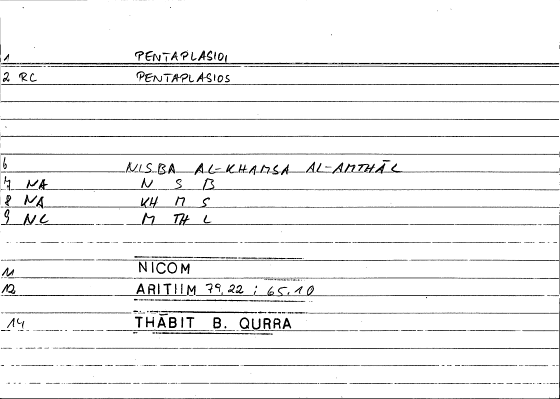 1 PENTAPLASIOI
2 RC PENTAPLASIOS
6 NISBA AL-KHAMSA AL-AMTHĀL
7 NA N S B
8 NA KH M S
9 NC M TH L
11 NICOM
12 ARITIIM 79,22 : 65,10
14 THĀBIT B. QURRA